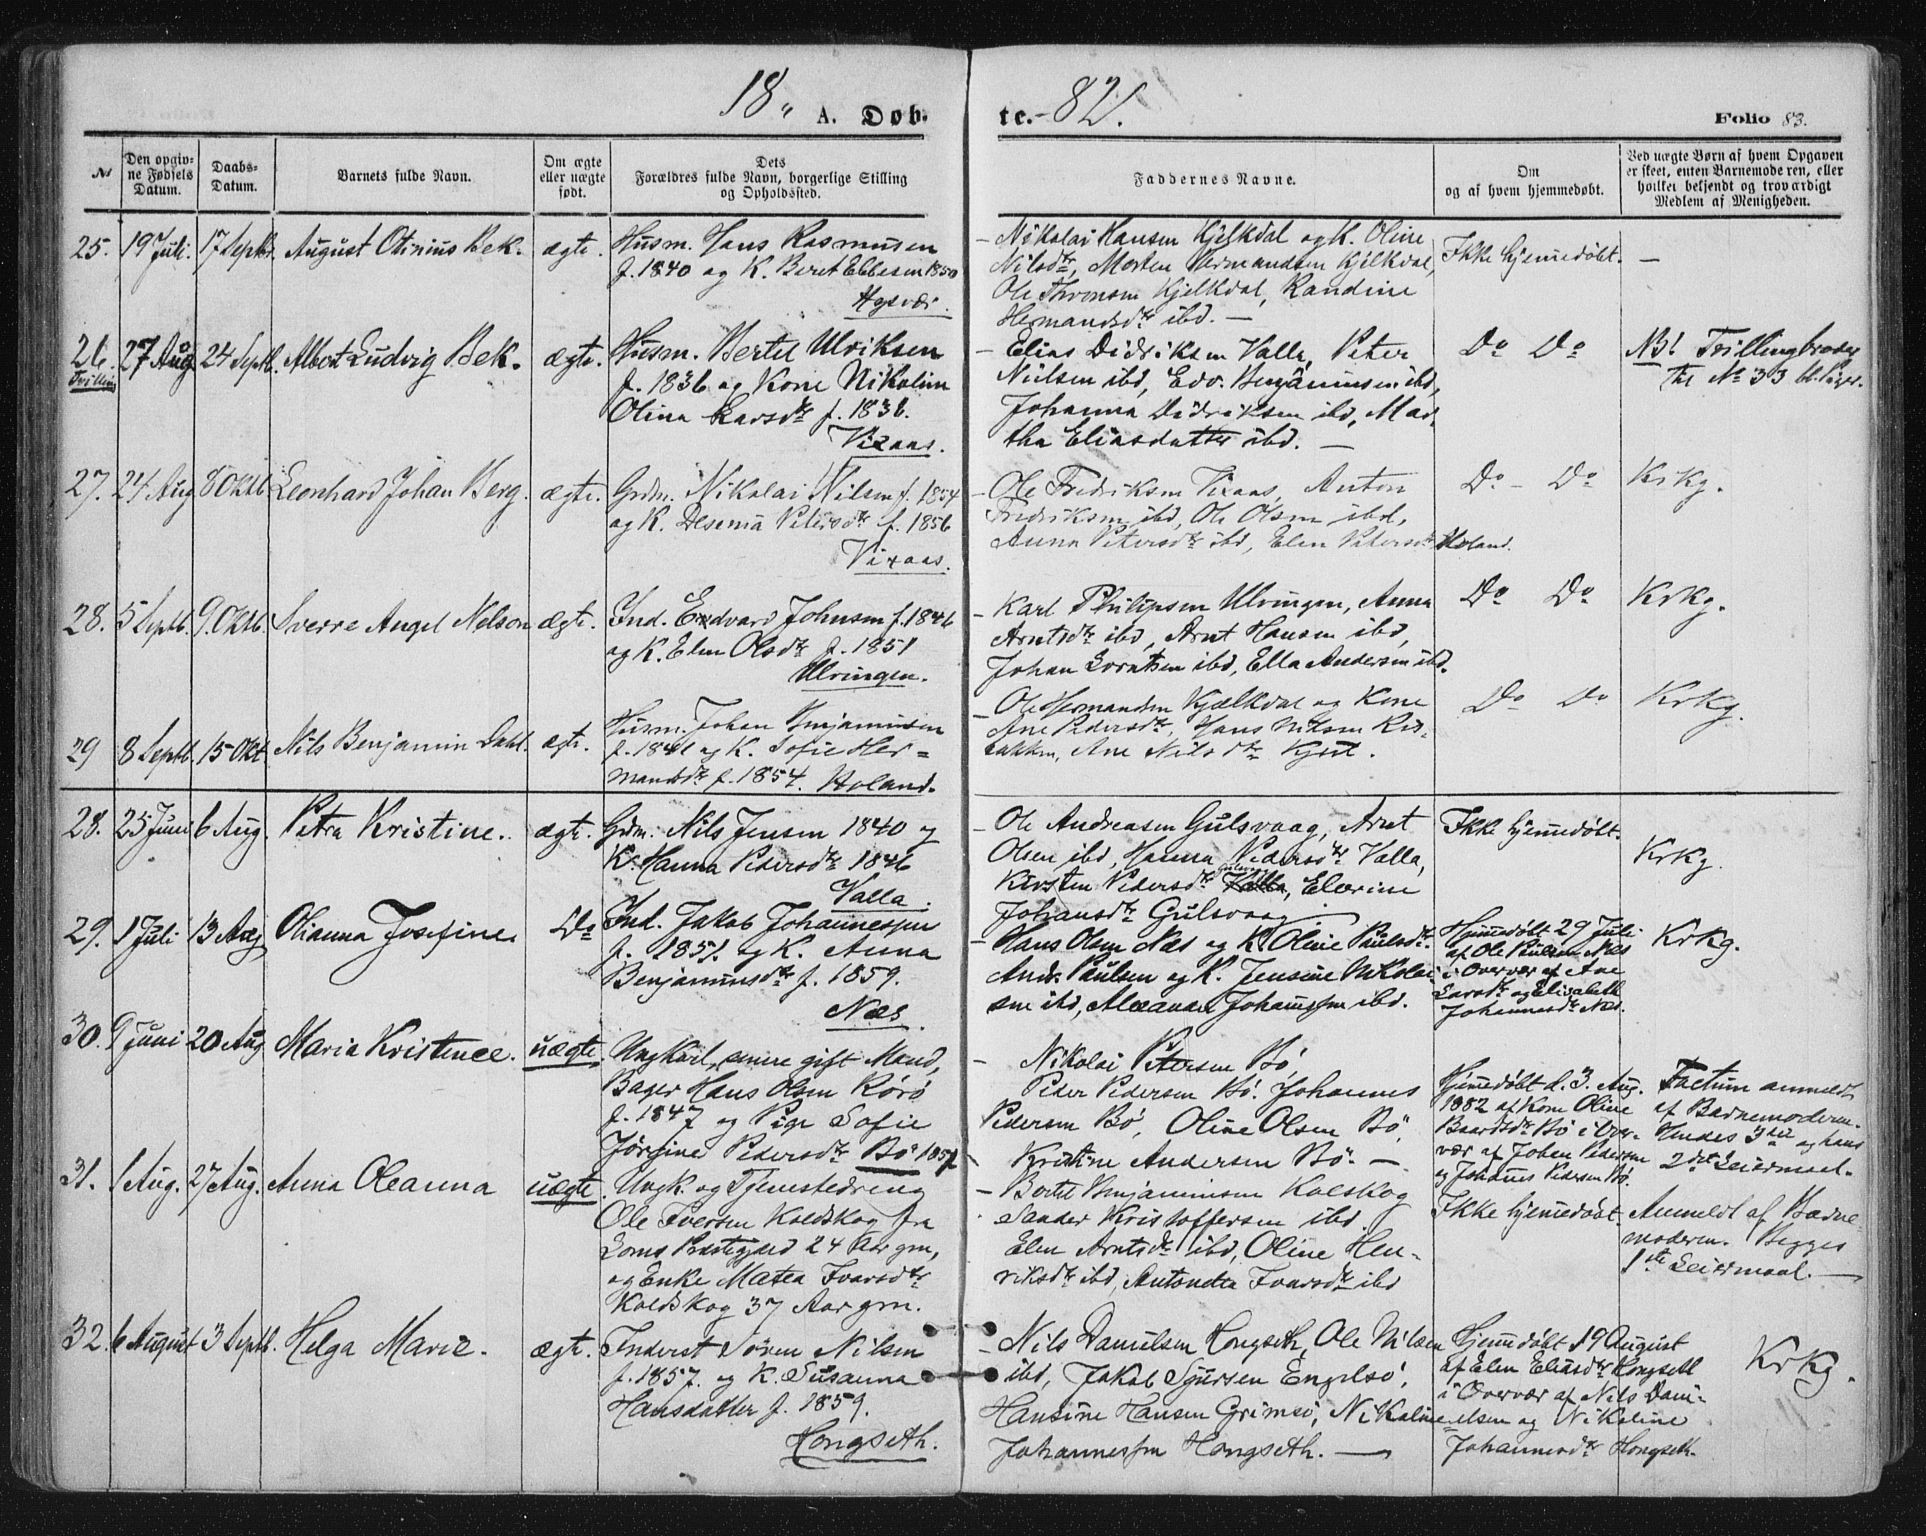 18 " A. Døb-
te. - 82.
Folio 83.
№
Den opgiv-
ne Fødsels
Datum.
Daabs-
Datum.
Barnets fulde Navn.
Om ægte
eller uægte
født.
Dets
Forældres fulde Navn, borgerlige Stilling
og Opholdssted.
Faddernes Navne.
Om
og af hvem hjemmedøbt.
Ved uægte Børn af hvem Opgaven
er skeet, enten Barnemoderen, eller
hvilket bekjendt og troværdigt
Medlem af Menigheden.
25. 19 Juli. 17 Septbr. August Otinius Bek. ægte.
Husm. Hans Rasmusen
f. 1840 og K. Beret Ebbesen 1850
- Nikolai Hansen Kjelkdal og K. Oline
Nilsdtr, Morten Hermandsen Kjelkdal,
Ole Thronsen Kjelkdal, Randine
Hermandsdtr ibd. -
Ikke hjemmedøbt. -
26. Tvilling 27 Aug 24 Septb. Albert Ludvig Bek. ægte.
Husm. Bertel Ulriksen
f. 1836 og Kone Nikoline
Olina Larsdtr f. 1836.
Vixaas.
- Elias Didriksen Valla, Peter
Nielsen ibd, Edv. Benjaminsen ibd,
Johanna Didriksen ibd, Mar-
tha Eliasdatter ibd. -
Do Do
NB! Tvillingbroder
til No 33 bl. Piger.
27. 24 Aug 8 Oktb. Leonhard Johan Berg. ægte.
Grdm. Nikolai Nilsen f. 1854
og K. Desema Petersdtr f. 1856
Vixaas.
- Ole Fredriksen Vixaas, Anton
Fredriksen ibd, Ole Olsen ibd,
Anna Petersdtr ibd, Elen Petersdtr Holand.
Do - Do
KrKg.
28. 5 Septb. 9. Oktb. Sverre Angel Nelson ægte.
Ind. Edvard Johnsen f. 1846
og K. Elen Olsdtr f. 1851
Ulvingen.
- Karl Philipsen Ulvingen, Anna
Arntsdtr ibd, Arnt Hansen ibd,
Johan Lorntsen ibd, Ella Andersen ibd.
Do Do
KrKg.
29 8 Septb. 15 Okt. Nils Benjamin Dahl. ægte.
Husm. Johan Benjaminsen
f. 1841 og K. Sofie Her=
mandsdtr f. 1854. Holand.
- Ole Hermandsen Kjælkdal og Kone
Ane Pedersdtr, Hans Nilsen Ris-
bakken, Ane Nilsdtr
Do Do
KrKg.
28. 25 Juni 6 Aug. Petra Kristine. ægte.
Grdm. Nils Jensen 1840 og
K. Hanna Pedersdtr 1846
Valla.
- Ole Andreasen Gulsvaag, Arnt
Olsen ibd, Hanna Pedersdtr Valla,
Kirsten Pedersdtr Valla, Elerine
Johansdtr Gulsvaag.
Ikke hjemmedøbt.
KrKg.
29. 1 Juli 13 Aug. Olianna Josefine. Do
Ind. Jakob Johannessen
f. 1851. og K. Anna
Benjaminsdtr f. 1859.
Næs.
- Hans Olsen Næs og K. Oline Paulsdtr.
Andr. Paulsen og K. Jensine Nikolai-
sen ibd, Alexander Johannessen ibd.
Hjemmedøbt 29 Juli
af Ole Paulsen Næs
i Overvær af Ane
Larsdtr og Elisabeth
Johannesdtr Næs.
KrKg.
30. 9 Juni 20 Aug Maria Kristence. uægte
Ungkarl, senere gift Mand,
Bager Hans Olsen Rörö
f. 1847 og Pige Sofie
Jörgine Pedersdtr Bö 1857
- Nikolai Petersen Bö,
Peder Pedersen Bö. Johannes
Pedersen Bö, Oline Olsen Bö,
Kristine Andersen Bö. -
Hjemmedøbt d. 3. Aug.
1882 af Kone Oline
Baardsdtr Bö i Over-
vær af Johan Pedersen
og Johannes Pedersen Bö.
Factum anmeldt
af Barnemoderen.
Hendes 3die og hans
2det Leiermaal.
31. 1 Aug. 27 Aug. Anna Oleanna uægte.
Ungk. og Tjenestedreng
Ole Iversen Koldskog fra
Loms Prestegjeld 24 Aar gm,
og Enke Matea Ivarsdtr
Koldskog 37 Aar gm.
- Bertel Benjaminsen Kolskog
Sander Kristoffersen ibd.
Elen Arntsdtr ibd, Oline Hen-
riksdtr ibd, Antonetta Ivarsdtr ibd
Ikke hjemmedøbt.
Anmeldt af Barne-
moderen. Begges
1ste Leiermaal. -
32. 6 August 3 Septb. Helga Marie. ægte.
Inderst Sören Nilsen
f. 1857. og K. Susanna
Hansdatter f. 1859.
Hongseth.
- Nils Danielsen Hongseth, Ole Nilsen
ibd, Jakob Sjursen Engelsö,
Hansine Hansen Grimsö, Nikoline
Johannessen Hongseth. -
Hjemmedøbt 19 August
af Elen Eliasdtr Hongseth
i Overvær af Nils Dani-
elsen og Nikoline
Johannesdtr Hongseth.
KrKg.